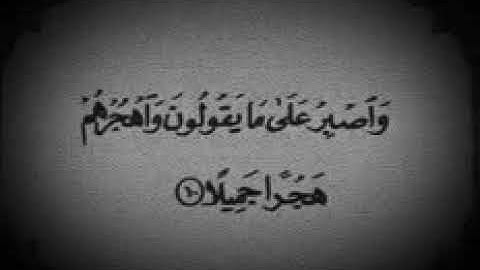 وَٱصْبِرْ عَلَىٰ مَا يَقُولُونَ وَٱهْجُرْهُمْ
هَجْرًا جَمِيلًا ۝١٠